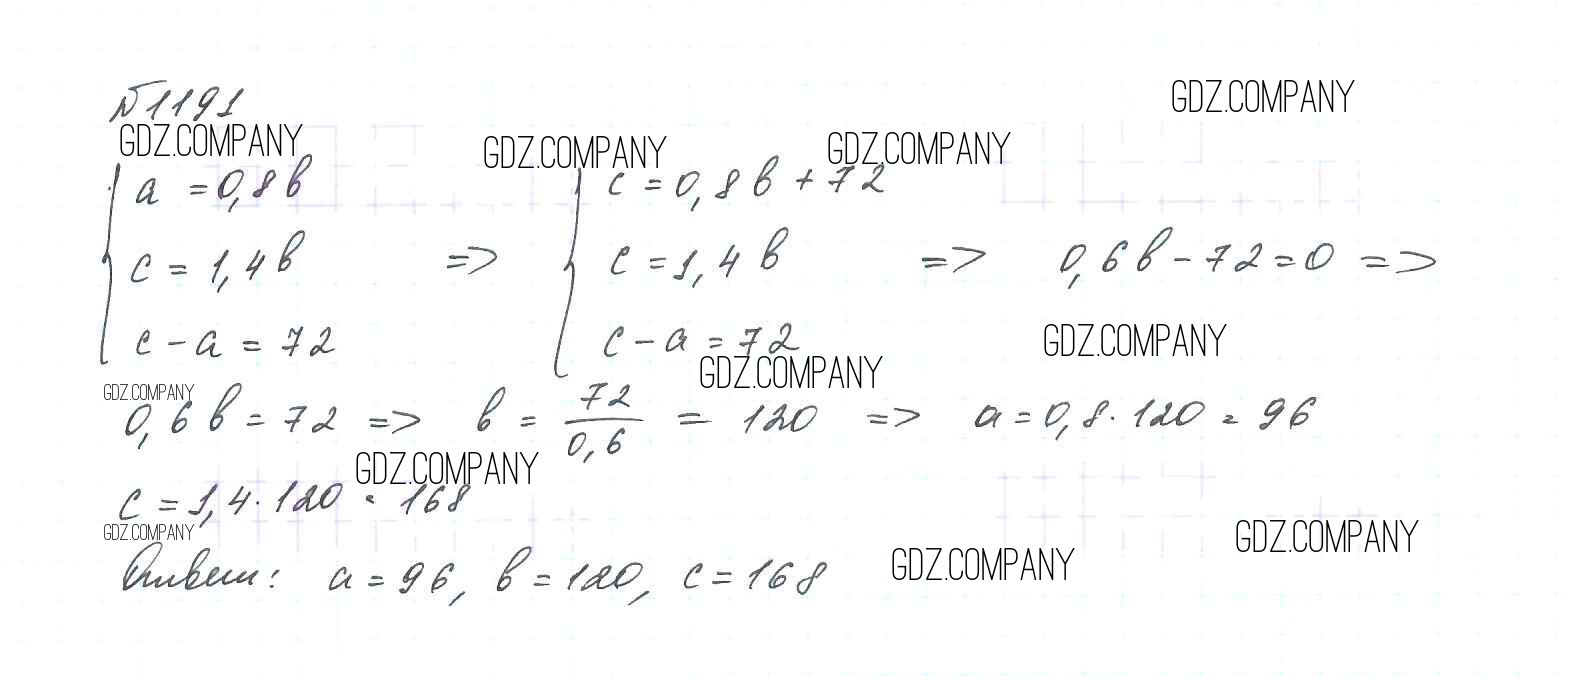 №1191
GDZ.COMPANY
GDZ.COMPANY GDZ.COMPANY GDZ.COMPANY
a = 0,8в
c = 1,4в
c - a = 72
=>
c = 0,8в + 72
c = 1,4в
c - a = 72
=> 0,6в - 72 = 0 =>
GDZ.COMPANY
GDZ.COMPANY GDZ.COMPANY
0,6в = 72 => в = 72/0,6 = 120 => a = 0,8 · 120 = 96
GDZ.COMPANY
c = 1,4 · 120 = 168
GDZ.COMPANY GDZ.COMPANY
GDZ.COMPANY
Ответ: a = 96, в = 120, c = 168